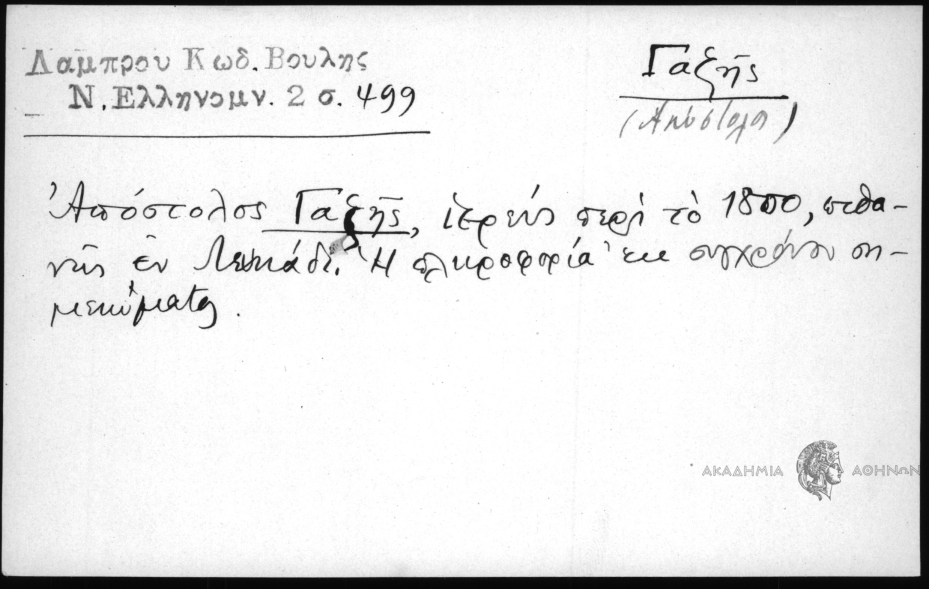 Λαμπρου Κωδ. Βουλης
Ν. Ελληνομν. 2 σ. 499
Γαζῆς
(Απόστολος)
Ἀπόστολος Γαζῆς, ἱερεύς περὶ τὸ 1800, πιθα-
νῶς ἐν Λευκάδι. Ἡ πληροφορία ἐκ συγχρόνου ση-
μειώματος.
ΑΚΑΔΗΜΙΑ ΑΘΗΝΩΝ